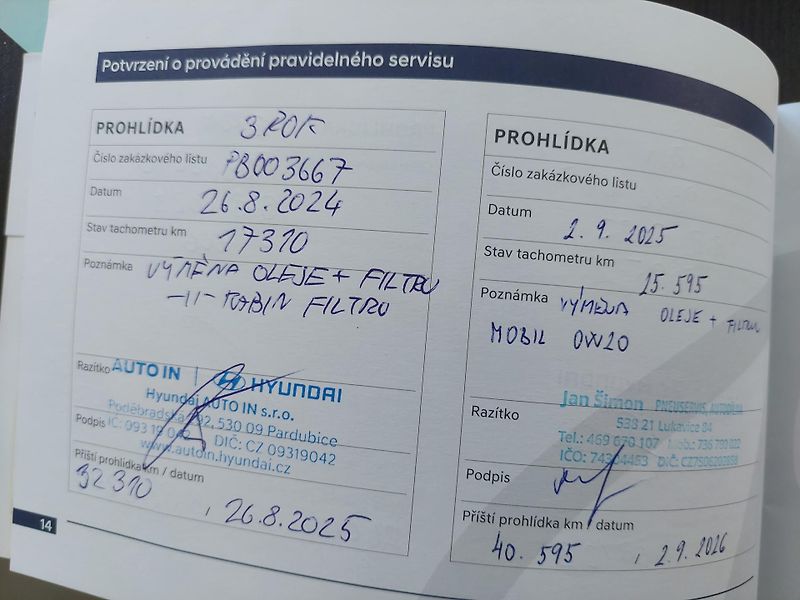 Potvrzení o provádění pravidelného servisu
PROHLÍDKA 3 ROK
Číslo zakázkového listu PB003667
Datum 26.8.2024
Stav tachometru km 17310
Poznámka VÝMĚNA OLEJE + FILTRU
-II- KABIN FILTRU
Razítko AUTO IN | HYUNDAI
Hyundai AUTO IN s.r.o.
Poděbradská 292, 530 09 Pardubice
Podpis IČ: 093 19 042 DIČ: CZ 09319042
www.autoin.hyundai.cz
Příští prohlídka km / datum
32310 , 26.8.2025
14
PROHLÍDKA
Číslo zakázkového listu
Datum 2.9. 2025
Stav tachometru km 25.595
Poznámka VÝMĚNA OLEJE + FILTRU
MOBIL 0W20
Razítko Jan Šimon PNEUSERVIS, AUTODÍLNA
538 21 Lukavice 84
Tel.: 469 670 107 Mob.: 736 790 002
IČO: 74304453
Podpis
Příští prohlídka km / datum
40.595 , 2.9.2026